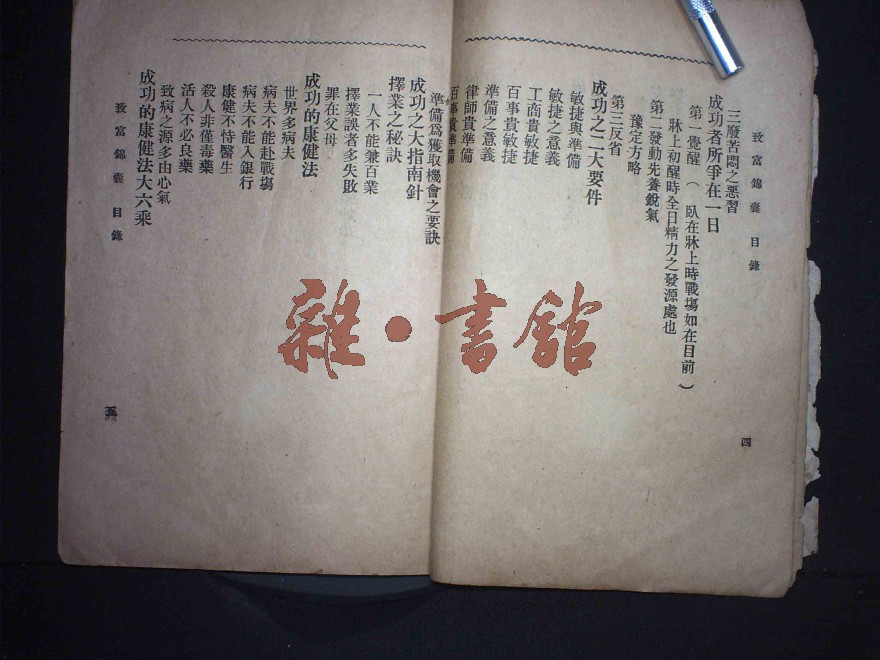 致富錦囊 目錄
三廢苦悶之悪習
成功者所爭在一日
第一覺醒（臥在牀上時戰塲如在目前）
牀上初醒時全日精力之發源處也
第二發動先養銳氣
豫定方略
第三反省
成功之二大要件
敏捷與準備
敏捷之意義
工商貴敏捷
百事貴敏捷
準備之意義
律師貴準備
百事貴準備
四
準備爲獲取機會之要訣
成功之大指南針
擇業之秘訣
一人不能兼百業
擇業誤者多失敗
罪在父母
成功的康健法
世界多病夫
病夫不能赴戰塲
病夫不能入銀行
康健不恃醫生
殺人非僅毒藥
活人不必良藥
致病之源多由心氣
成功的康健法大六乘
致富錦囊 目錄
五
雜·書館